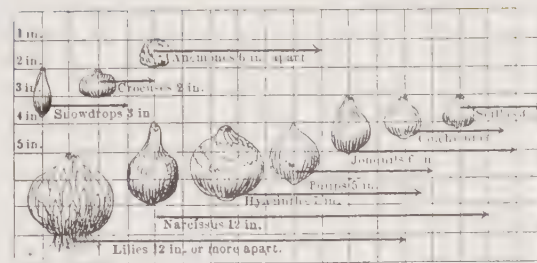 1 in.
Anemones 6 in. apart
2 in.
3 in.
Crocuses 2 in.
Snowdrops 3 in.
4 in.
5 in.
Jonquils 6 in.
Tulips 5 in.
Hyacinths 7 in.
Narcissus 12 in.
Lilies 12 in. or more apart.